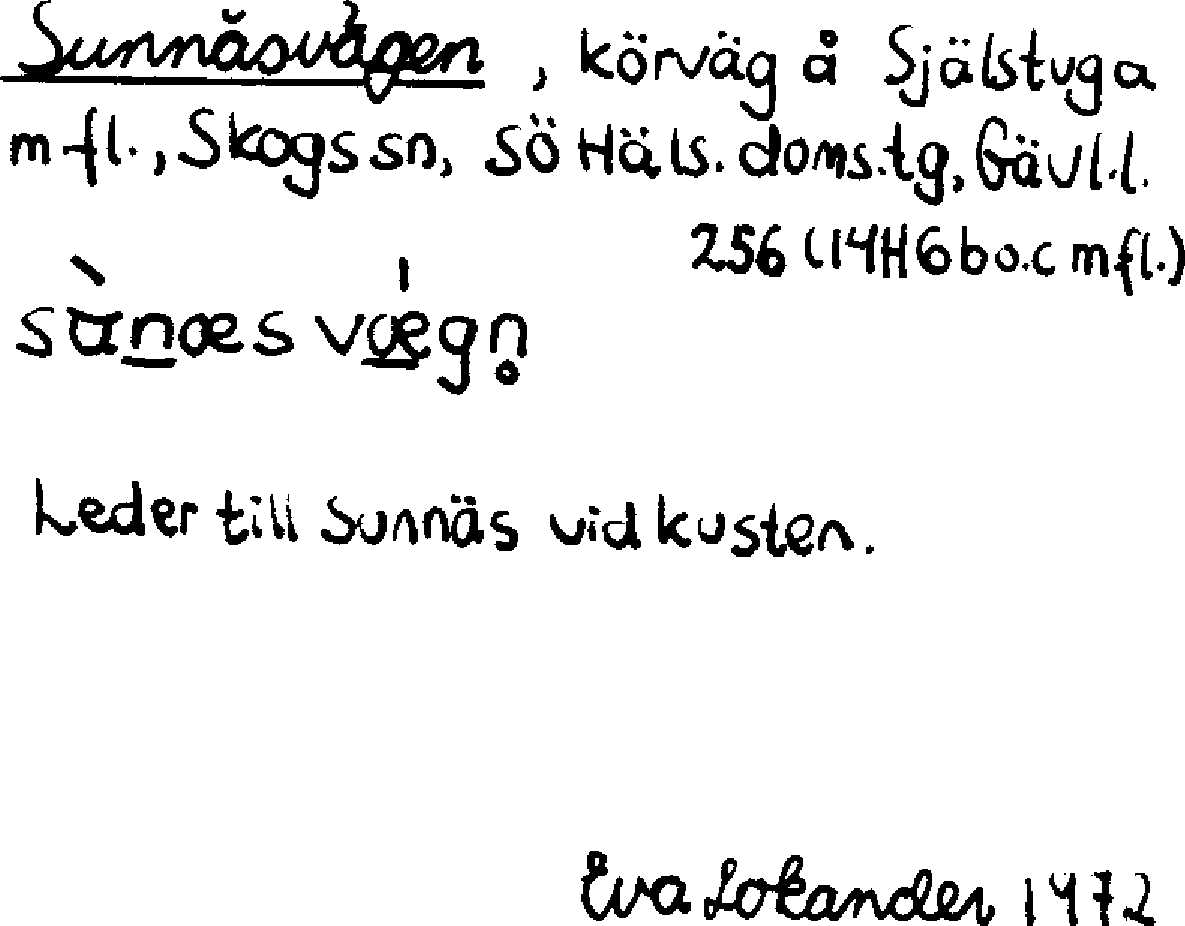 Sunnäsvägen, körväg å Själstuga
m fl., Skogs sn, SÖ Häls. doms.tg, Gävl.l.
256 (14H6b o.c m fl.)
sànæs vǽgn̥
Leder till Sunnäs vid kusten.
Eva Lokander 1972